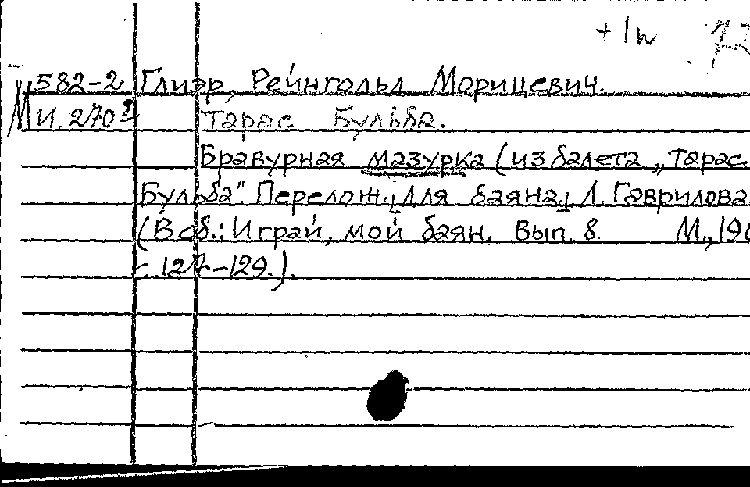 +1н 72
М 582-2 Глиэр, Рейнгольд Морицевич.
И. 270 Тарас Бульба.
Бравурная мазурка (из балета „Тарас
Бульба". Перелож. для баяна Л. Гаврилова
(В сб.: Играй, мой баян. Вып. 8 М., 19
с. 127-129.).